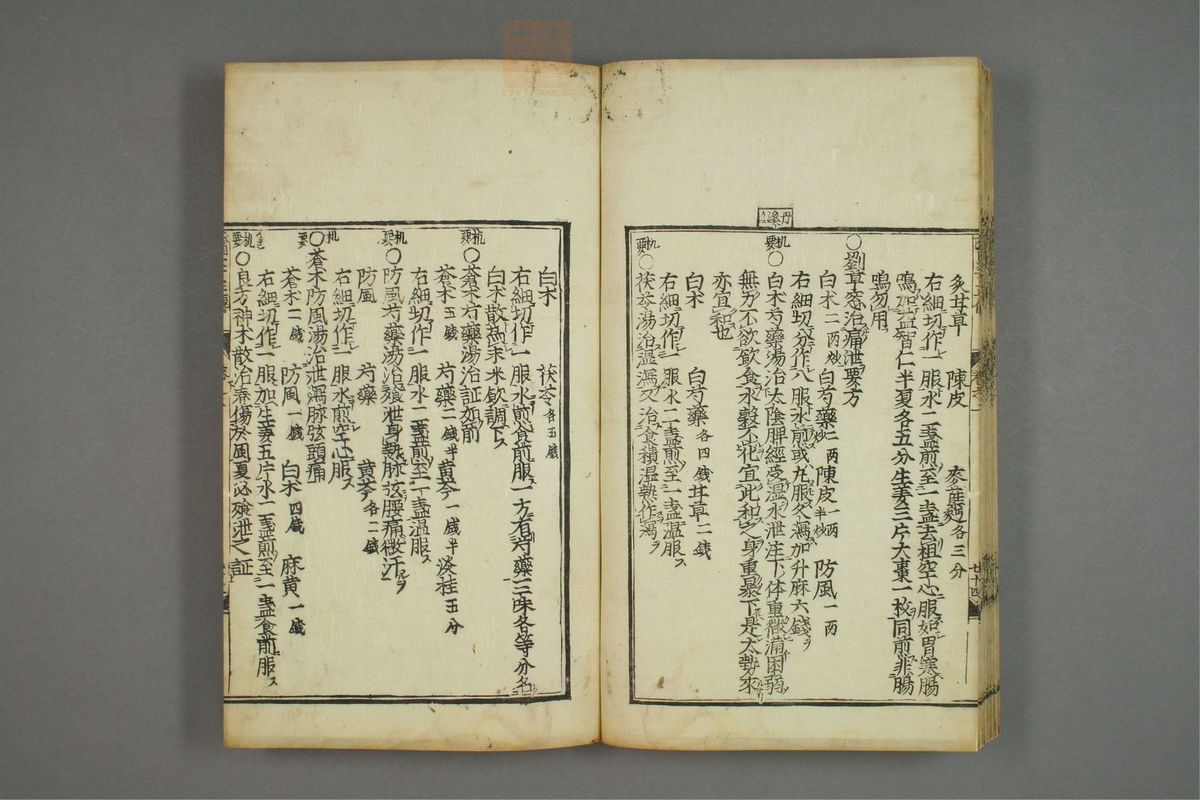 炙甘草　陳皮　麥蘖麪各三分
右細切作一服水二盞煎至一盞去柤空心服如胃寒腸
鳴加益智仁半夏各五分生姜三片大棗一枚同煎非腸
鳴勿用
○劉草窓治痛泄要方
白朮二两炒白芍藥二两炒陳皮一两半炒防風一两
右細切分作八服水煎或丸服久瀉加升麻六錢
机要○白朮芍藥湯治太陰脾經受湿水泄注下体重微満困弱
無力不欲飲食水穀不化宜此和之身重暴下是大勢來
亦宜和也
白朮　白芍藥各四錢甘草二錢
右細切作一服水二盞煎至一盞温服
机要○茯苓湯治湿瀉又治食積湿熱作瀉
白朮　茯苓各五錢
右細切作一服水煎食前服一方有芍藥三味各等分名
白朮散為末米飲調下
机要○蒼朮芍藥湯治証如前
蒼朮五錢　芍藥二錢半黄芩一錢半淡桂五分
右細切作一服水一盞煎至一盞温服
机要○防風芍藥湯治飧泄身熱脉弦腰痛微汗
防風　芍藥　黄芩各二錢
右細切作一服水煎空心服
机要○蒼朮防風湯治泄瀉脉弦頭痛
蒼朮二錢　防風一錢　白朮四錢　麻黄一錢
右細切作一服加生姜五片水二盞煎至一盞食前服
机要○良方神朮散治春傷於風夏必飧泄之証